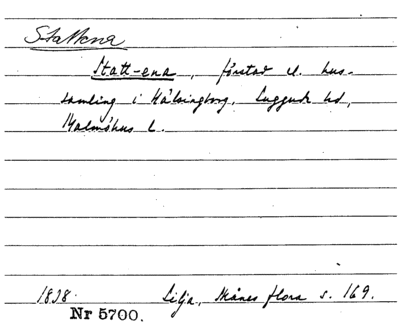 Stattena
Statt-ena, förstad el. hus-
samling i Hälsingborg, Luggude hd,
Malmöhus l.
1838. Lilja, Skånes flora s. 169.
Nr 5700.